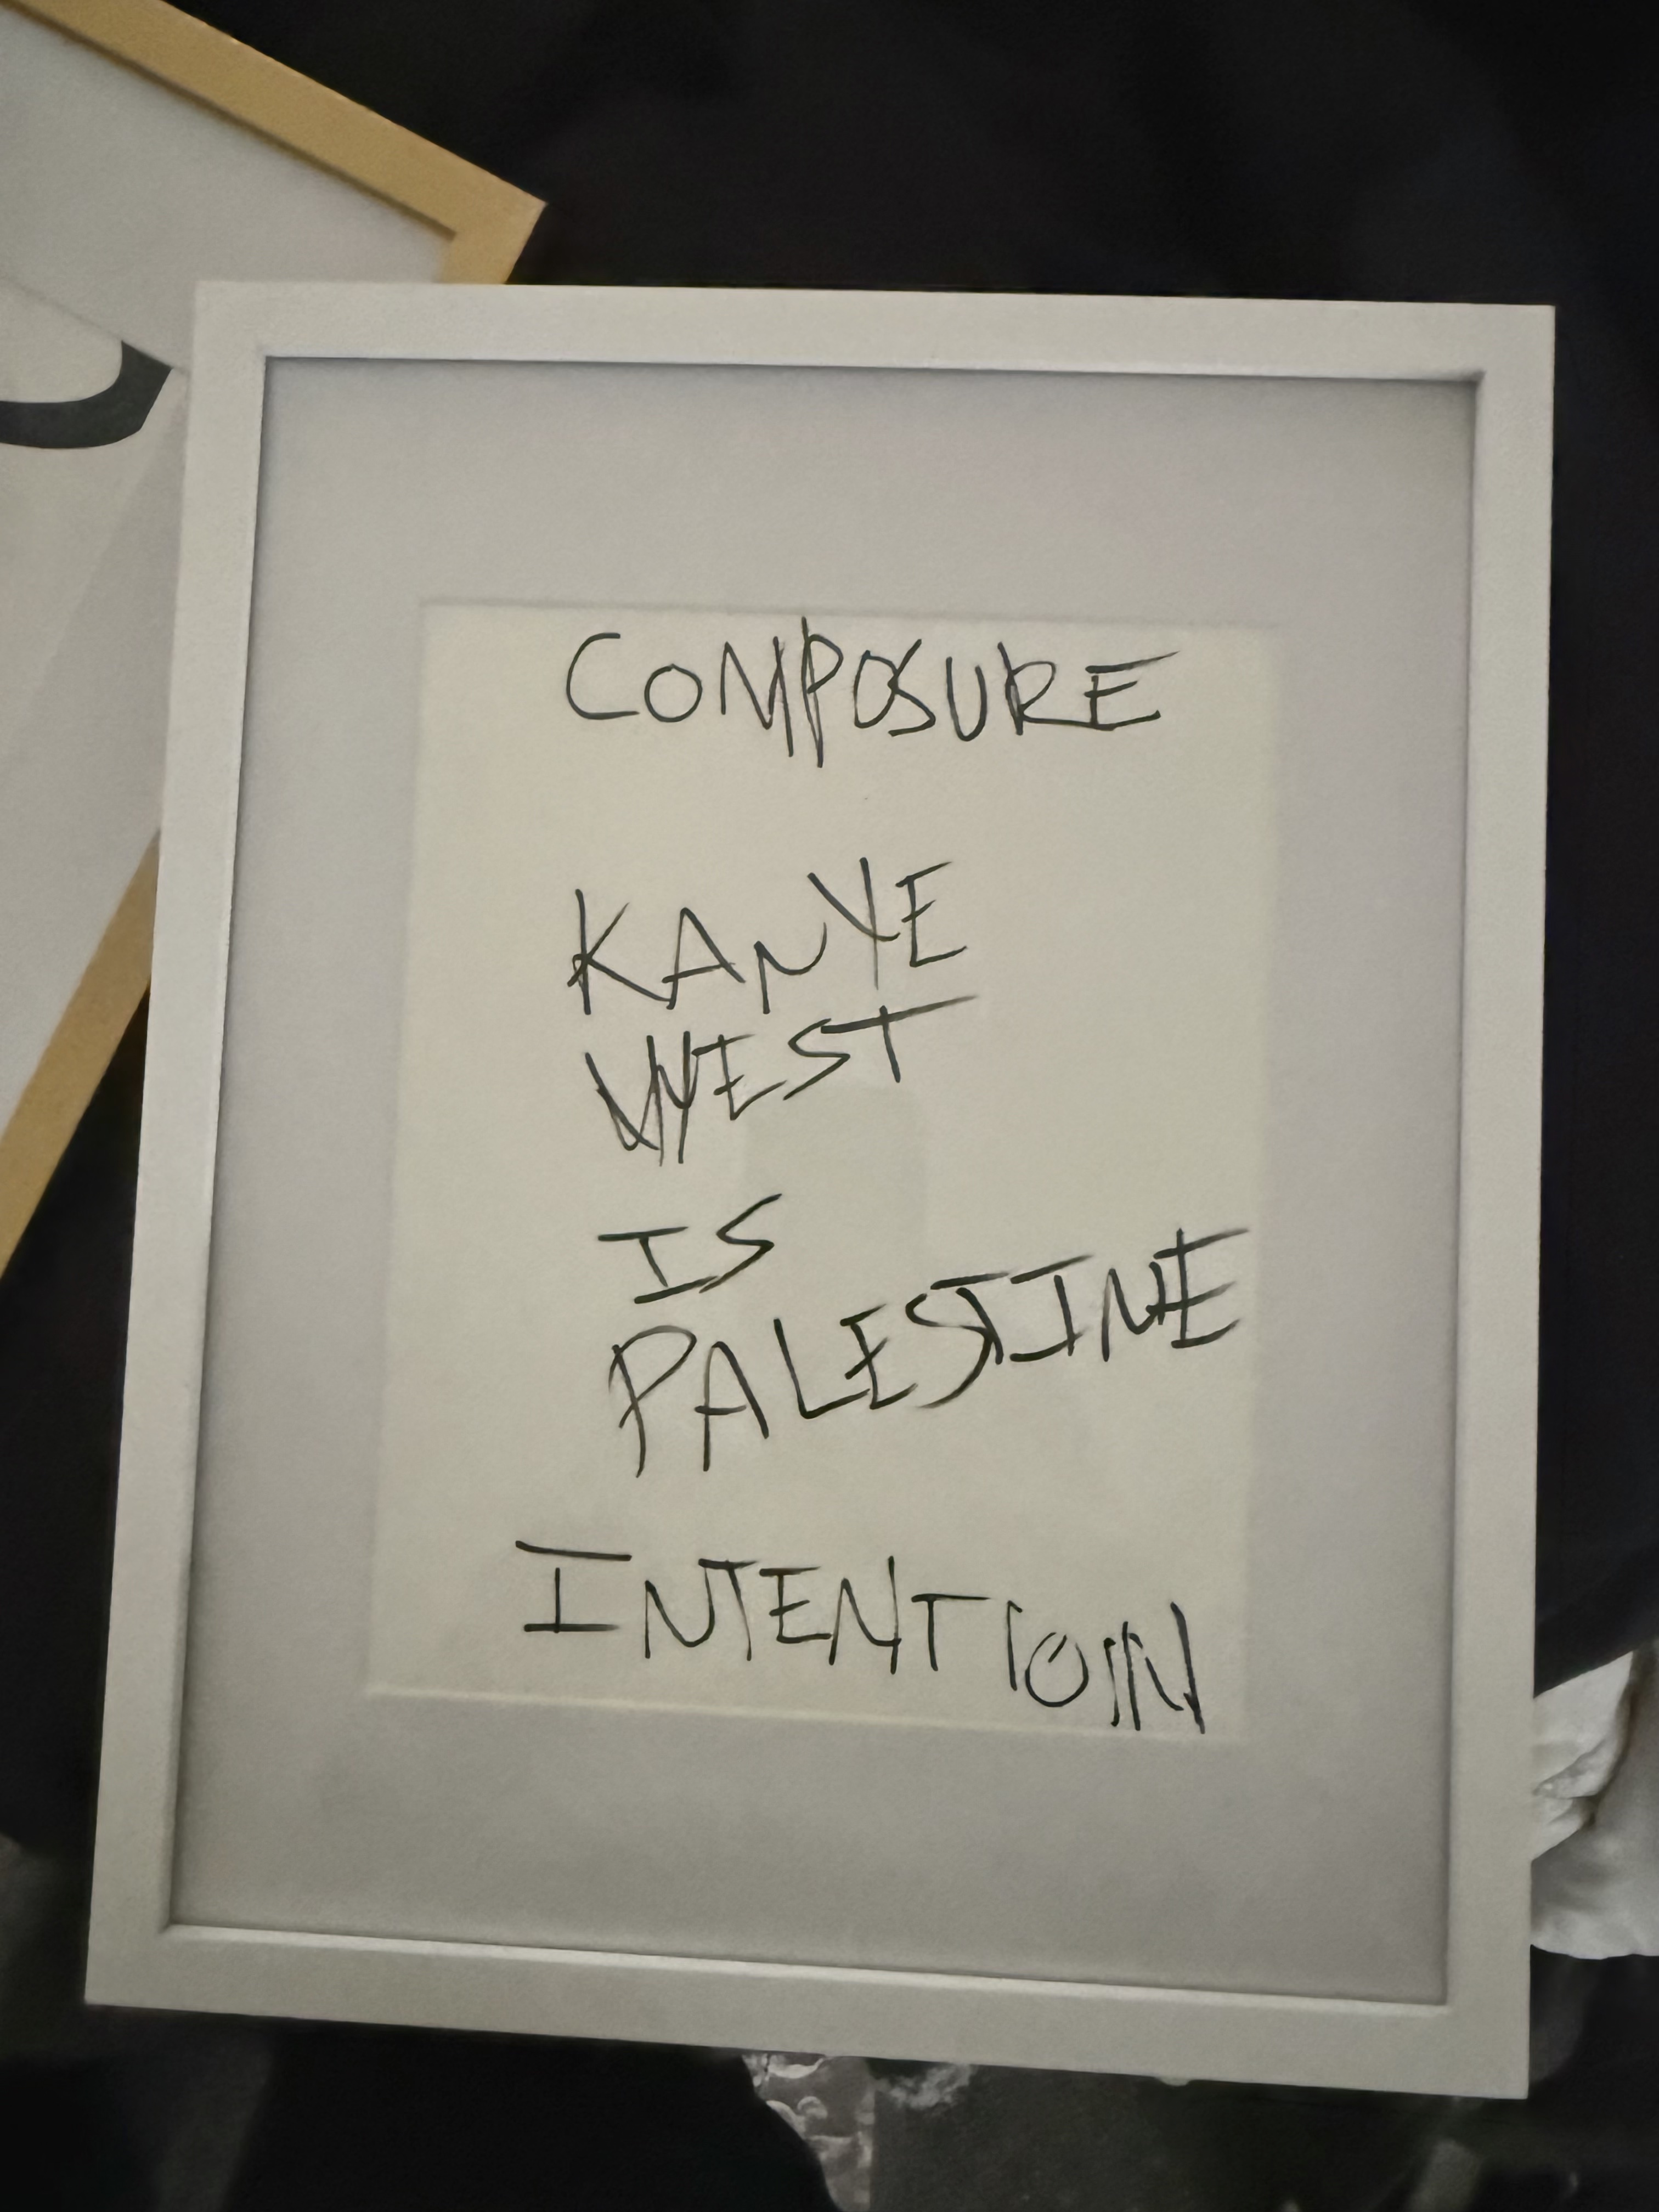 COMPOSURE
KANYE
WEST
IS
PALESTINE
INTENTION